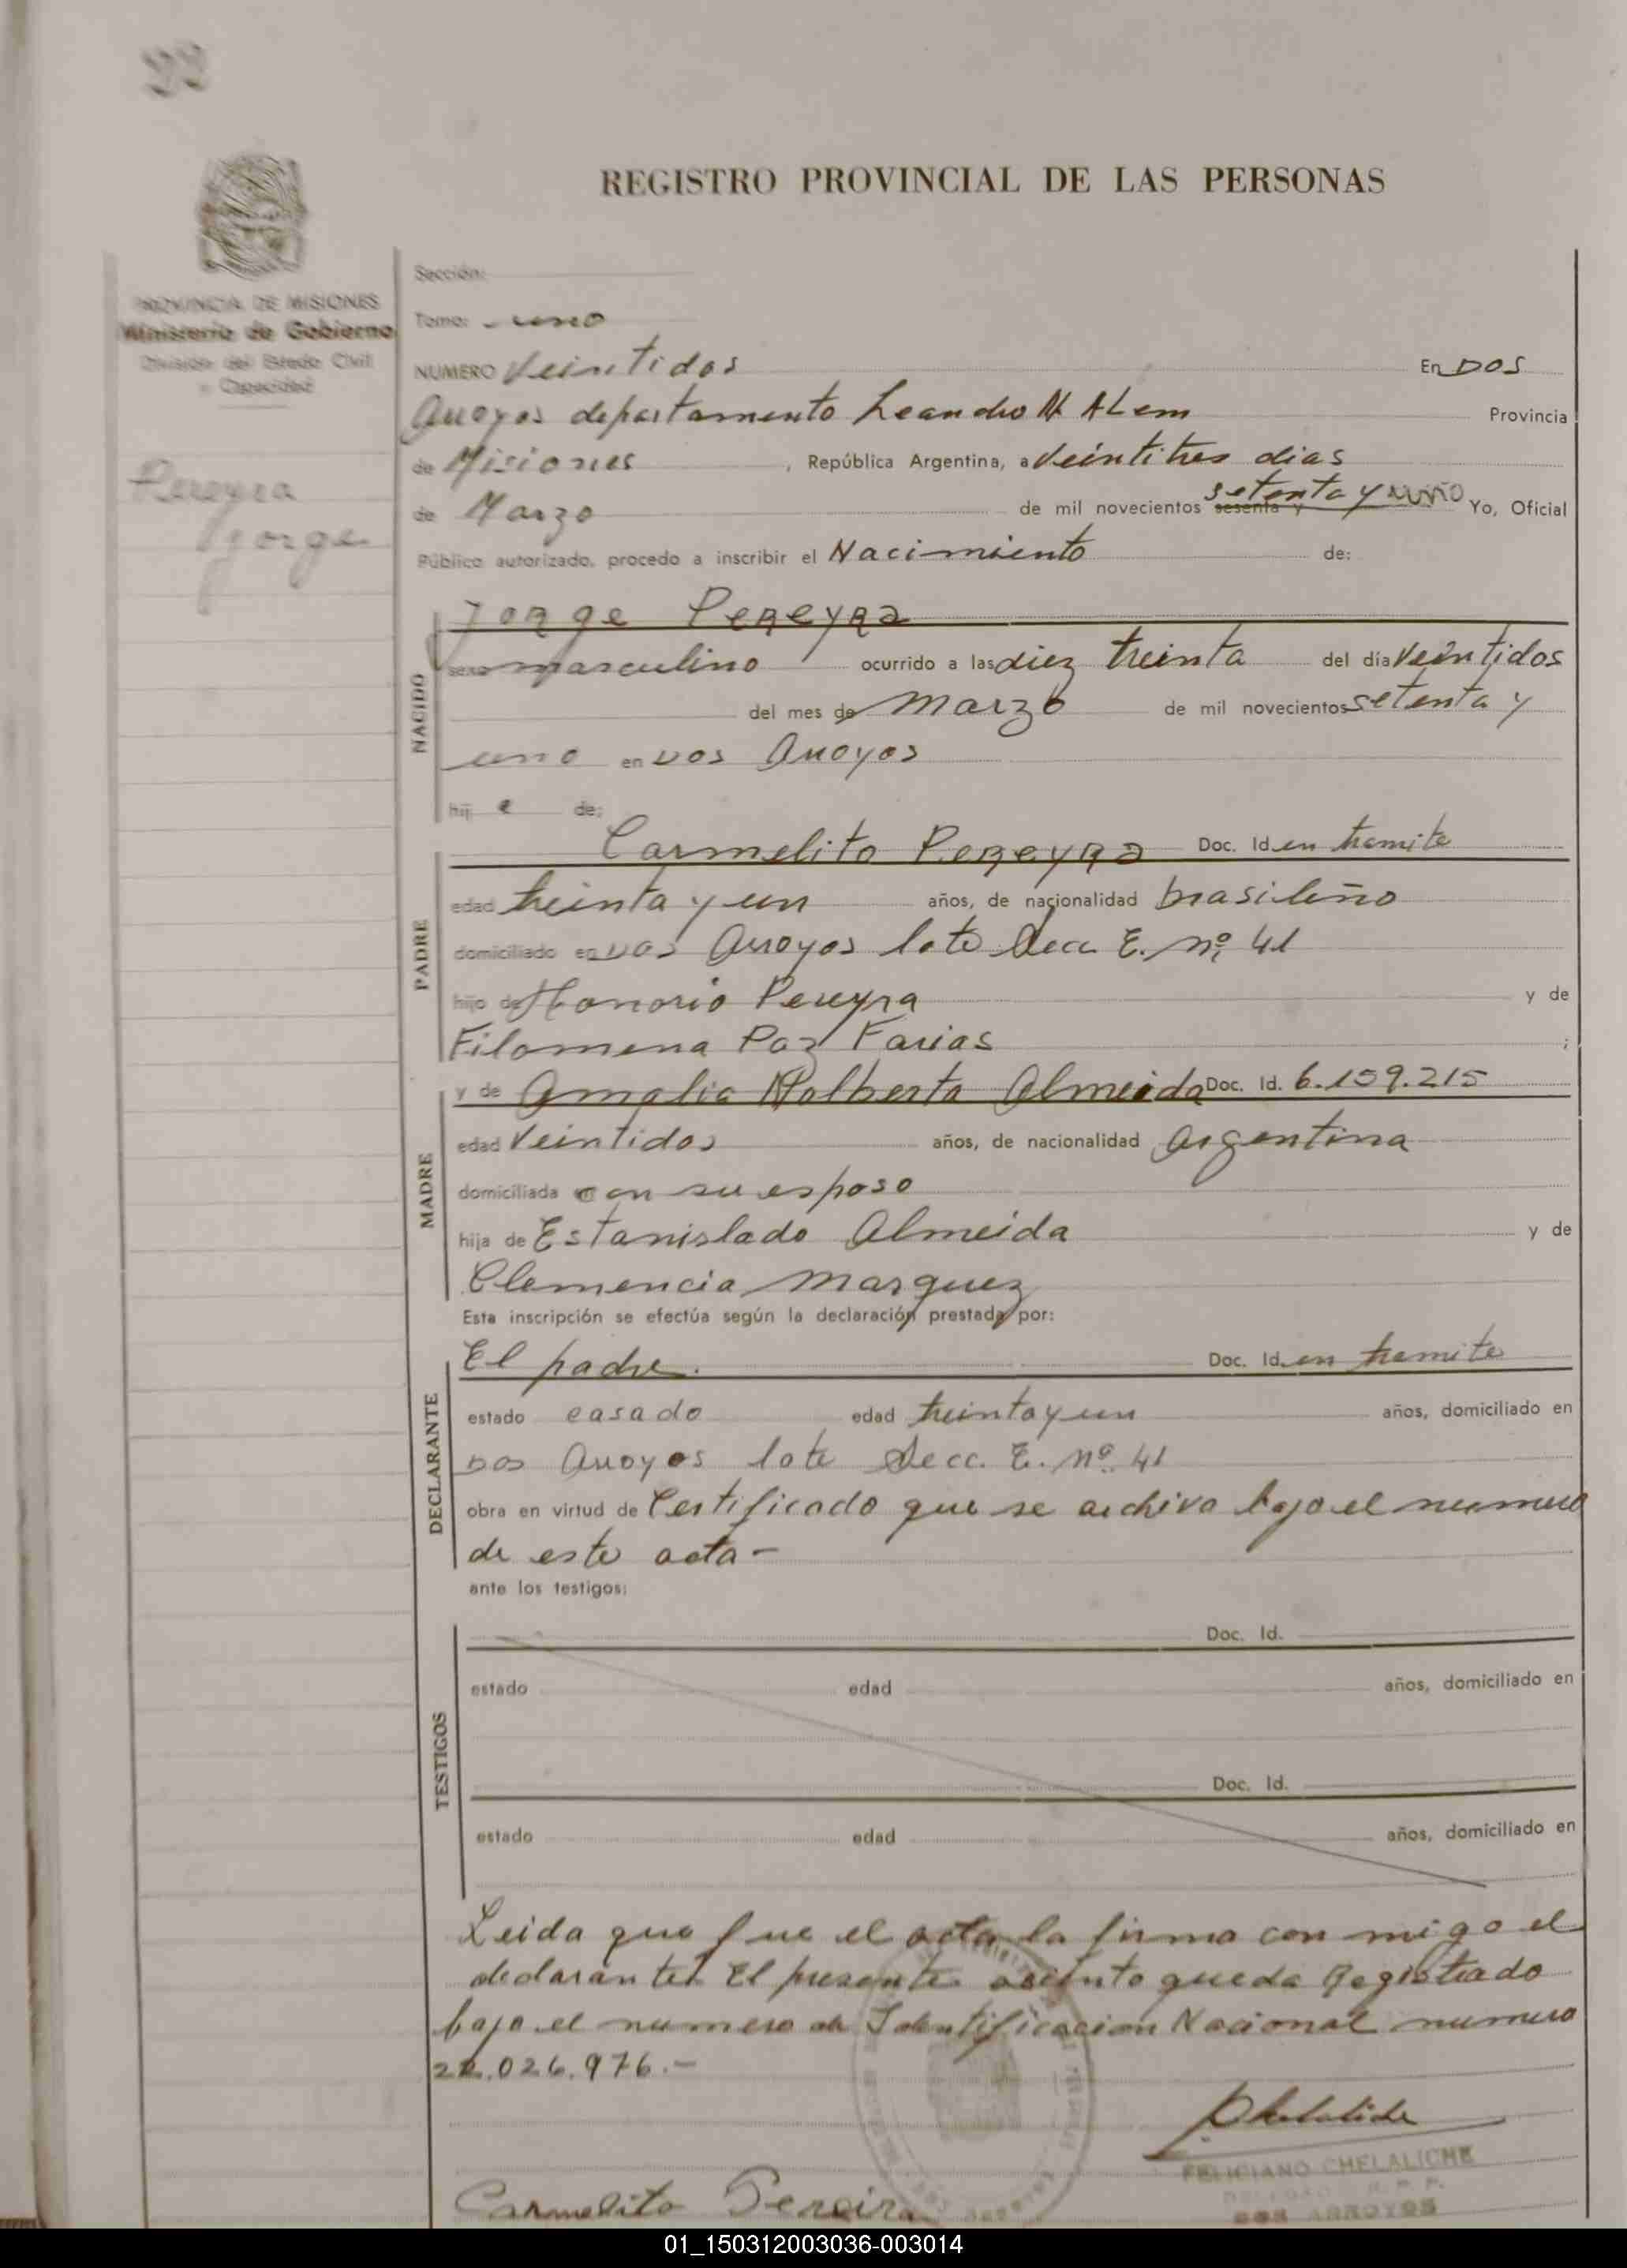 22
REGISTRO PROVINCIAL DE LAS PERSONAS
PROVINCIA DE MISIONES
Ministerio de Gobierno
División del Estado Civil
y Capacidad
Pereyra
Jorge
Sección:
Tomo: uno
NUMERO Veintidos En Dos
Arroyos departamento Leandro N ALem Provincia
de Misiones, República Argentina, a Veintitres dias
de Marzo de mil novecientos sesenta y setenta y uno Yo, Oficial
Público autorizado, procedo a inscribir el Nacimiento de:
NACIDO
Jorge Pereyra
sexo masculino ocurrido a las diez treinta del día Veintidos
del mes de Marzo de mil novecientos setenta y
uno en Dos Arroyos
hij o de:
PADRE
Carmelito Pereyra Doc. Id. en tramite
edad treinta y un años, de nacionalidad brasileño
domiciliado en Dos Arroyos lote Secc E. nº 41
hijo de Honorio Pereyra y de
Filomena Paz Farias ;
MADRE
y de Amalia Nolberta Almeida Doc. Id. 6.159.215
edad Veintidos años, de nacionalidad Argentina
domiciliada con su esposo
hija de Estanislado Almeida y de
Clemencia Marquez
Esta inscripción se efectúa según la declaración prestada por:
DECLARANTE
El padre. Doc. Id. en tramite
estado casado edad treinta y un años, domiciliado en
Dos Arroyos lote Secc. E. Nº 41
obra en virtud de Certificado que se archiva bajo el numero
de este acta -
ante los testigos:
TESTIGOS
Doc. Id.
estado edad años, domiciliado en
Doc. Id.
estado edad años, domiciliado en
Leida que fue el acta la firma con migo el
declarante. El presente asiento queda Registrado
bajo el numero de Identificacion Nacional numero
22.026.976.-
FELICIANO CHELALICHE
DOS ARROYOS
Carmelito Pereira
01_150312003036-003014